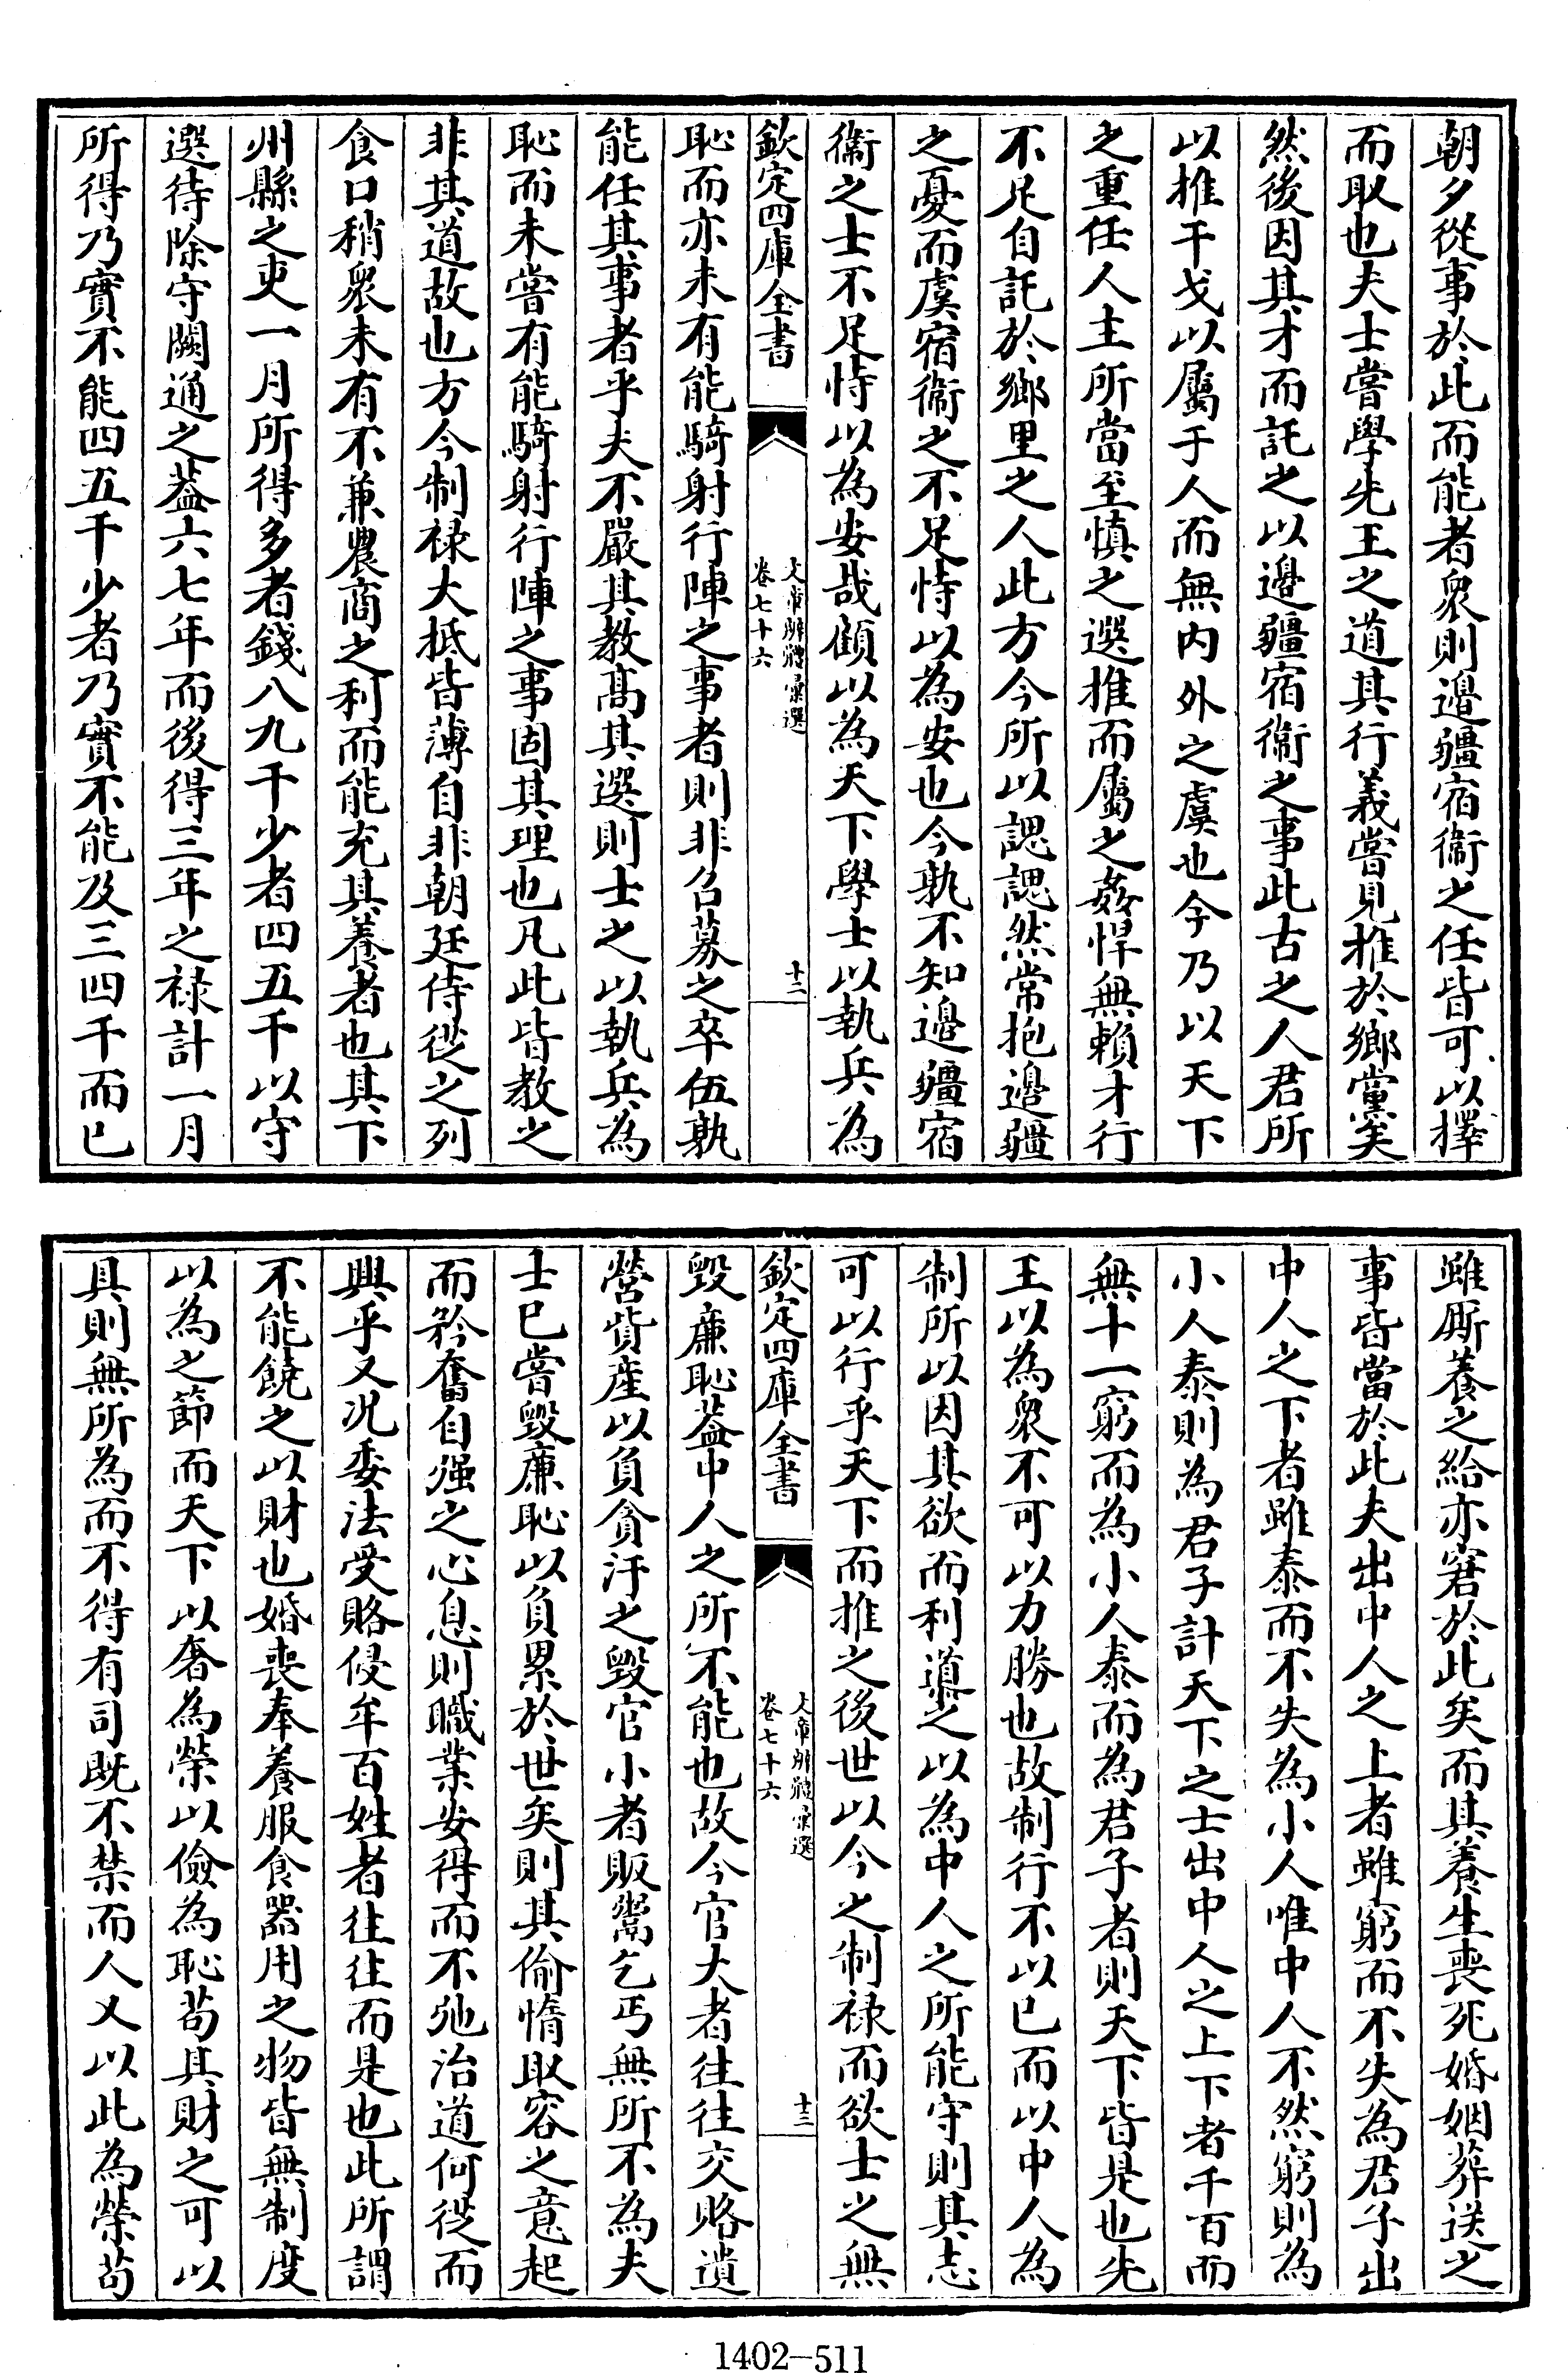 朝夕從事於此而能者衆則邊疆宿衞之任皆可以擇
而取也夫士嘗學先王之道其行義嘗見推於鄉黨矣
然後因其才而託之以邊疆宿衞之事此古之人君所
以推干戈以屬于人而無内外之虞也今乃以天下
之重任人主所當至慎之選推而屬之姦悍無賴才行
不足自託於鄉里之人此方今所以諰諰然常抱邊疆
之憂而虞宿衞之不足恃以為安也今孰不知邊疆宿
衞之士不足恃以為安哉顧以為天下學士以執兵為
欽定四庫全書
文章辨體彙選
卷七十六
十二
恥而亦未有能騎射行陣之事者則非召募之卒伍孰
能任其事者乎夫不嚴其教髙其選則士之以執兵為
恥而未嘗有能騎射行陣之事固其理也凡此皆教之
非其道故也方今制禄大抵皆薄自非朝廷侍從之列
食口稍衆未有不兼農商之利而能充其養者也其下
州縣之吏一月所得多者錢八九千少者四五千以守
選待除守闕通之葢六七年而後得三年之禄計一月
所得乃實不能四五千少者乃實不能及三四千而已
雖厮養之給亦窘於此矣而其養生喪死婚姻葬送之
事皆當於此夫出中人之上者雖窮而不失為君子出
中人之下者雖泰而不失為小人唯中人不然窮則為
小人泰則為君子計天下之士出中人之上下者千百而
無十一窮而為小人泰而為君子者則天下皆是也先
王以為衆不可以力勝也故制行不以已而以中人為
制所以因其欲而利道之以為中人之所能守則其志
可以行乎天下而推之後世以今之制禄而欲士之無
欽定四庫全書
文章辨體彙選
卷七十六
十三
毁亷恥葢中人之所不能也故今官大者往往交賂遺
營貲産以負貪汙之毁官小者販鬻乞丐無所不為夫
士已嘗毁亷恥以負累於世矣則其偷惰取容之意起
而矜奮自强之心息則職業安得而不弛治道何從而
興乎又况委法受賂侵牟百姓者往往而是也此所謂
不能饒之以財也婚喪奉養服食器用之物皆無制度
以為之節而天下以奢為榮以儉為恥苟其財之可以
具則無所為而不得有司既不禁而人又以此為榮苟
1402-511